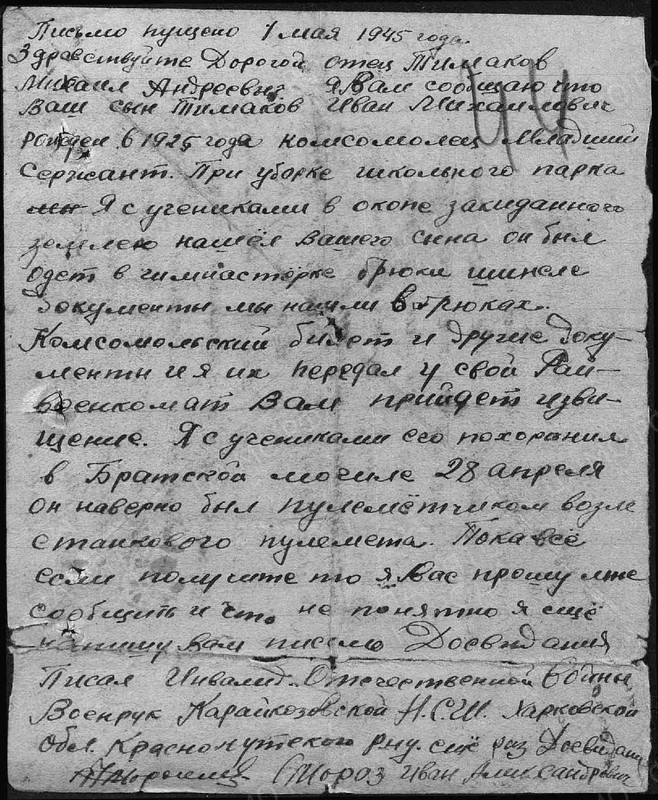 Письмо пущено 1 мая 1945 года.
Здравствуйте Дорогой отец Тимаков
Михаил Андреевич Я Вам сообщаю что
Ваш сын Тимаков Иван Михайлович
рожден в 1925 года комсомолец Младший
Сержант. При уборке школьного парка
Я с учениками в окопе закиданного
землею нашёл Вашего сына он был
одет в гимнастёрке брюки шинеле
документы мы нашли в брюках.
Комсомольский билет и другие доку-
менты и я их передал у свой Рай-
военкомат Вам прийдет изви-
щение. Я с учениками его похоронил
в Братской могиле 28 апреля
он наверно был пулемётчиком возле
станкового пулемета. Пока всё
если получите то я Вас прошу мне
сообщить и что не понятно я ещё
напишу Вам письмо Досвидания
Писал Инвалид Отечественной Войны
Военрук Карайкозовской Н.С.Ш. Харковской
Обл. Краснокутского рну. ещё раз Досвидани
(Мороз Иван Александрович